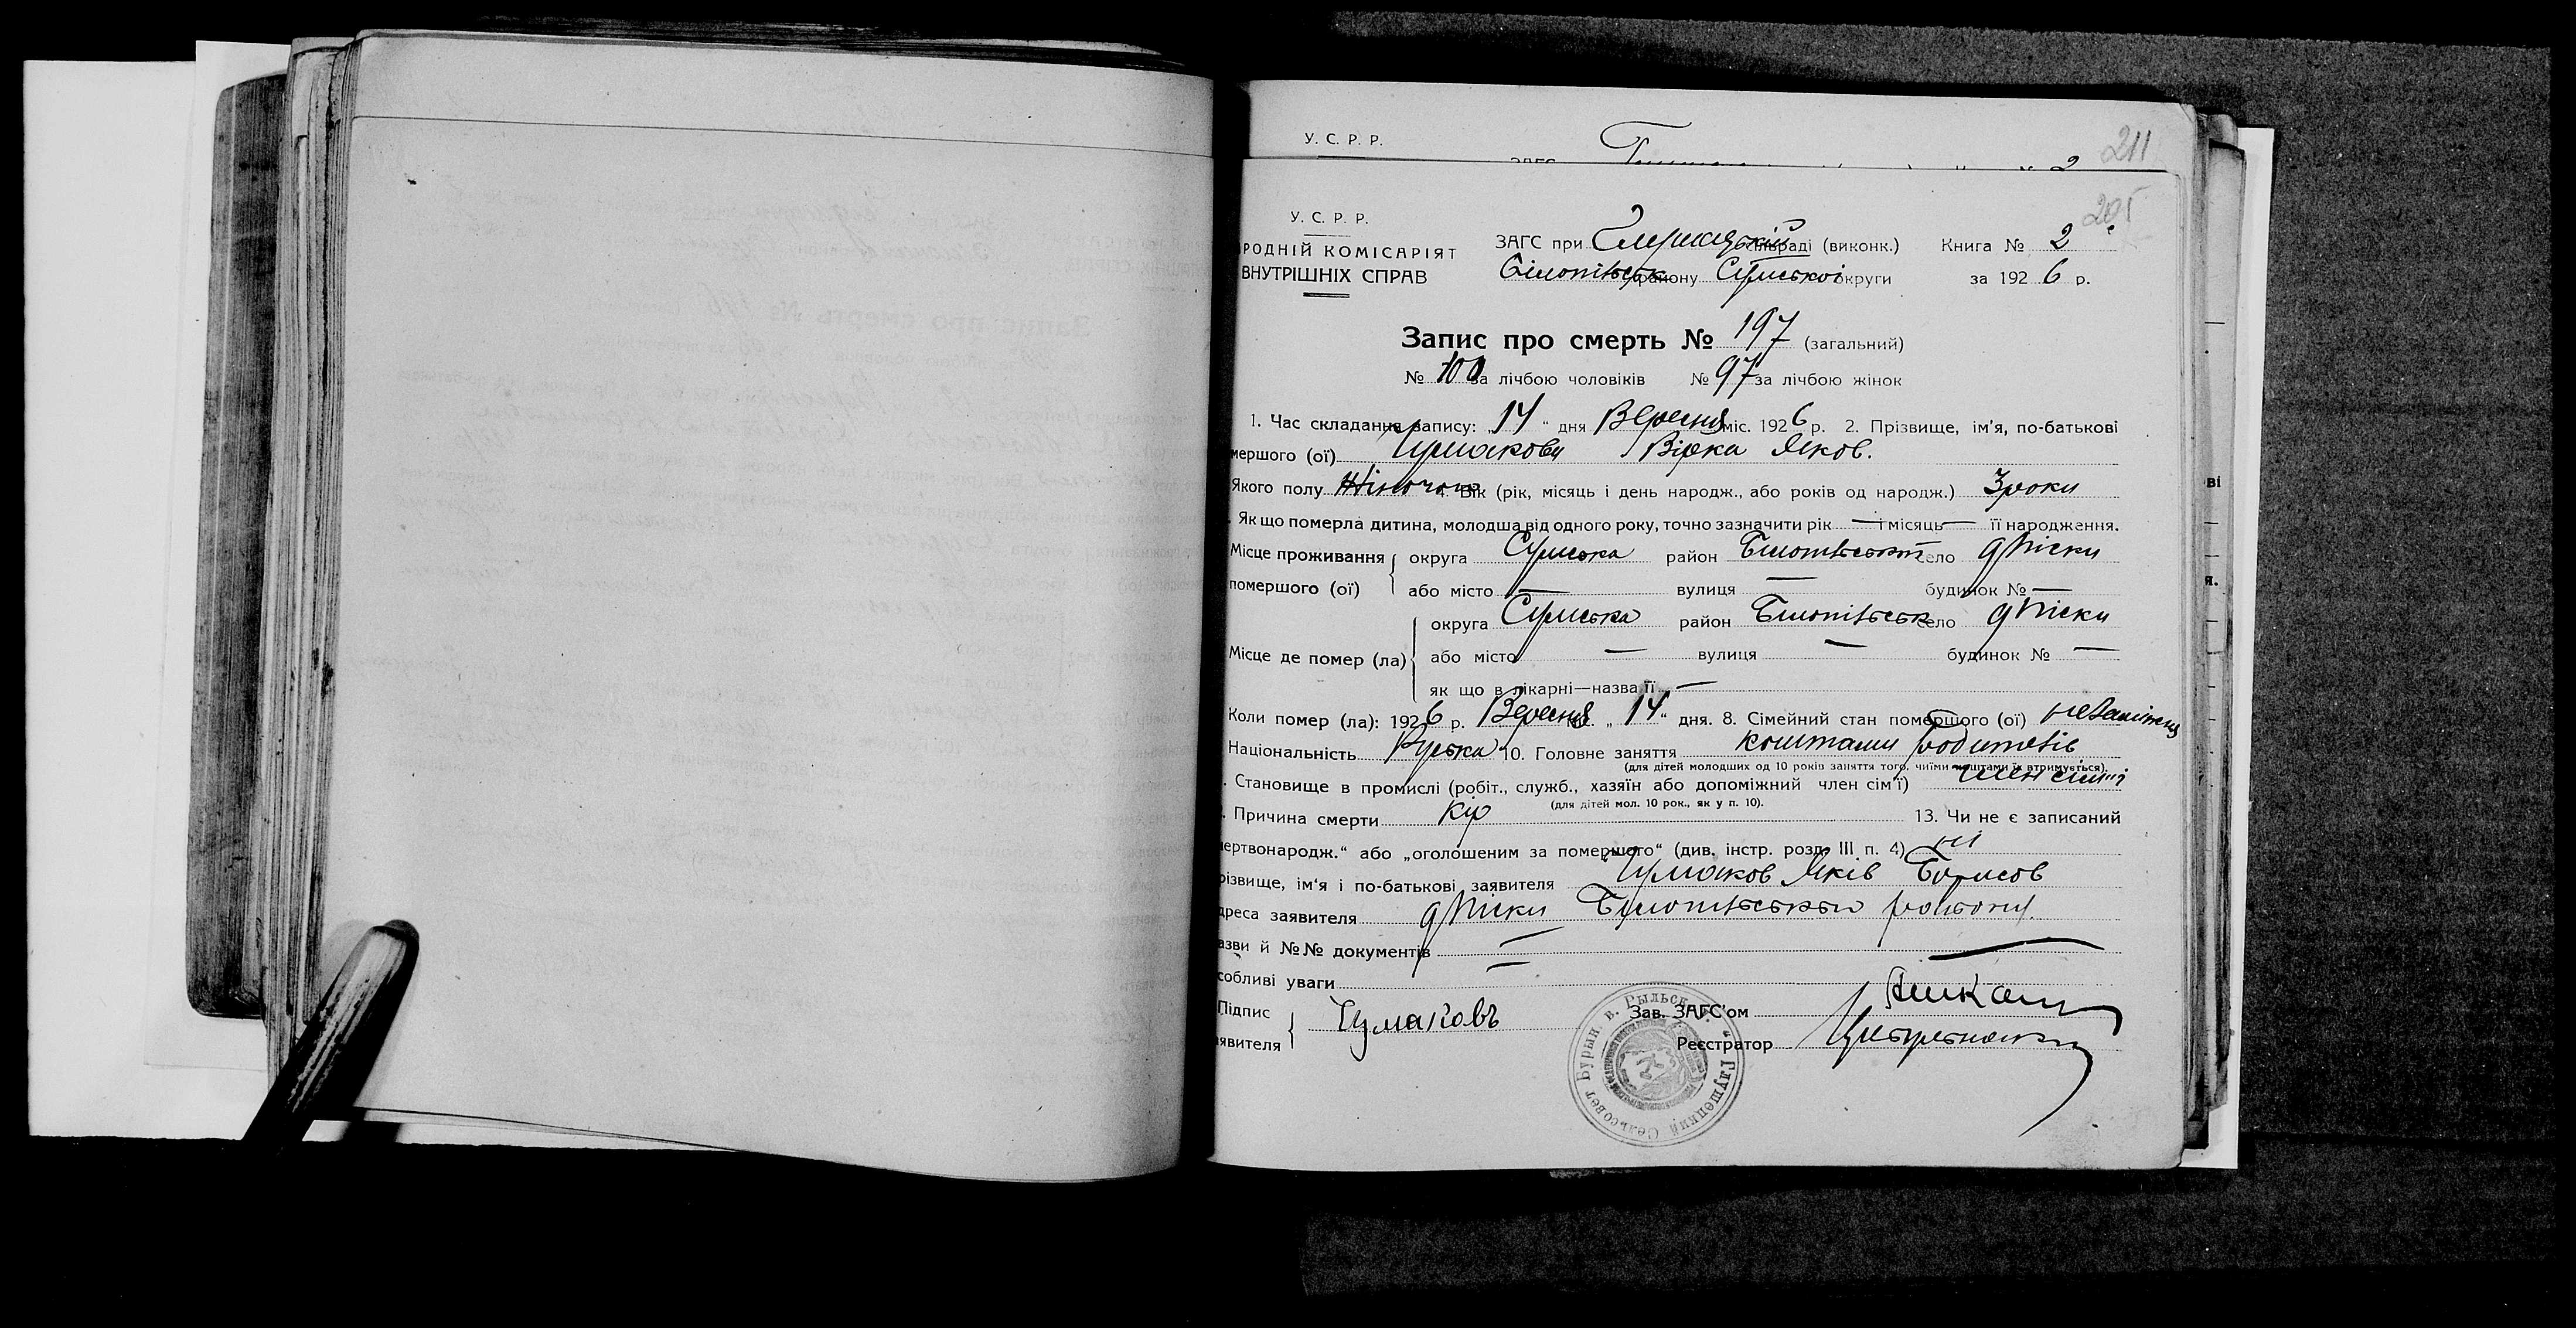 У. С. Р. Р.
211
2
У. С. Р. Р.
РОДНІЙ КОМІСАРІЯТ
ВНУТРІШНІХ СПРАВ
205
ЗАГС при сільраді (виконк.) Книга № 2
району Сумської округи за 1926 р.
Запис про смерть № 197 (загальний)
№ 100 за лічбою чоловіків № 97 за лічбою жінок
1. Час складання запису: „14“ дня Вересня міс. 1926 р. 2. Прізвище, ім'я, по-батькові
мершого (ої) Чумакова Вірка Яков.
Якого полу Жіночого 4. Вік (рік, місяць і день народж., або років од народж.) 3 роки
Якщо померла дитина, молодша від одного року, точно зазначити рік — і місяць — її народження.
Місце проживання округа Сумська район Білопільськ село д Піски
помершого (ої) або місто — вулиця — будинок № —
округа Сумська район Білопільськ село д Піски
Місце де помер (ла) або місто — вулиця — будинок № —
як що в лікарні—назва її —
Коли помер (ла): 1926 р. Вересня „14“ дня. 8. Сімейний стан помершого (ої) незаміжня
Національність Руська 10. Головне заняття коштами родителів
(для дітей молодших од 10 років заняття того, чиїми коштами їх втримується)
. Становище в промислі (робіт., служб., хазяїн або допоміжний член сім'ї) член сімї
(для дітей мол. 10 рок., як у п. 10).
. Причина смерти Кір 13. Чи не є записаний
мертвонародж.“ або „оголошеним за помершого“ (див. інстр. розд. III п. 4) ні
різвище, ім'я і по-батькові заявителя Чумаков Яків Борисов
дреса заявителя д Піски Білопільського району
азви й №№ документів —
собливі уваги —
Підпис
явителя
Чумаковъ
Зав. ЗАГС'ом
Реєстратор
Глушецкий Сельсовет Бурын. в. Рыльск